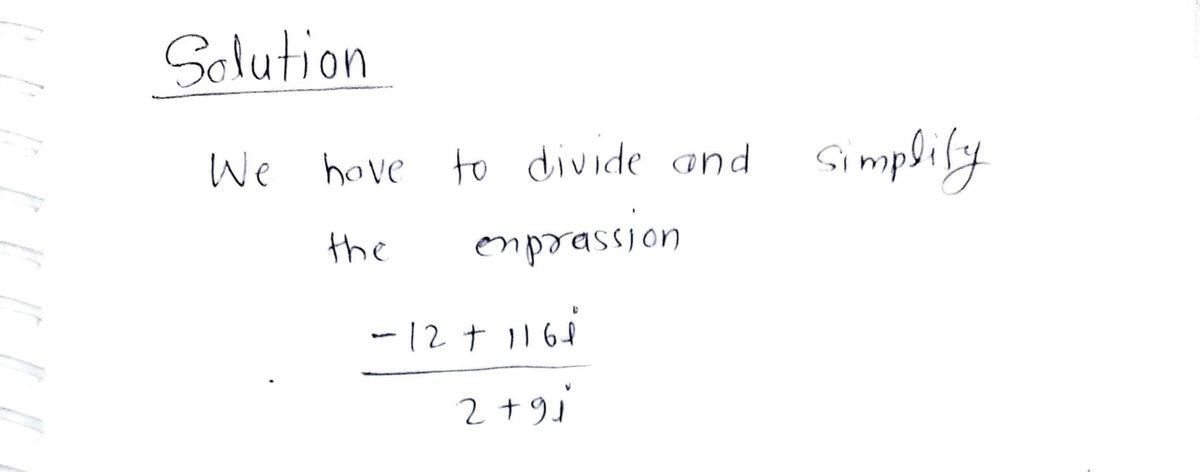 Solution
We have to divide and simplify
the enprassion
-12 + 116i
2 + 9i